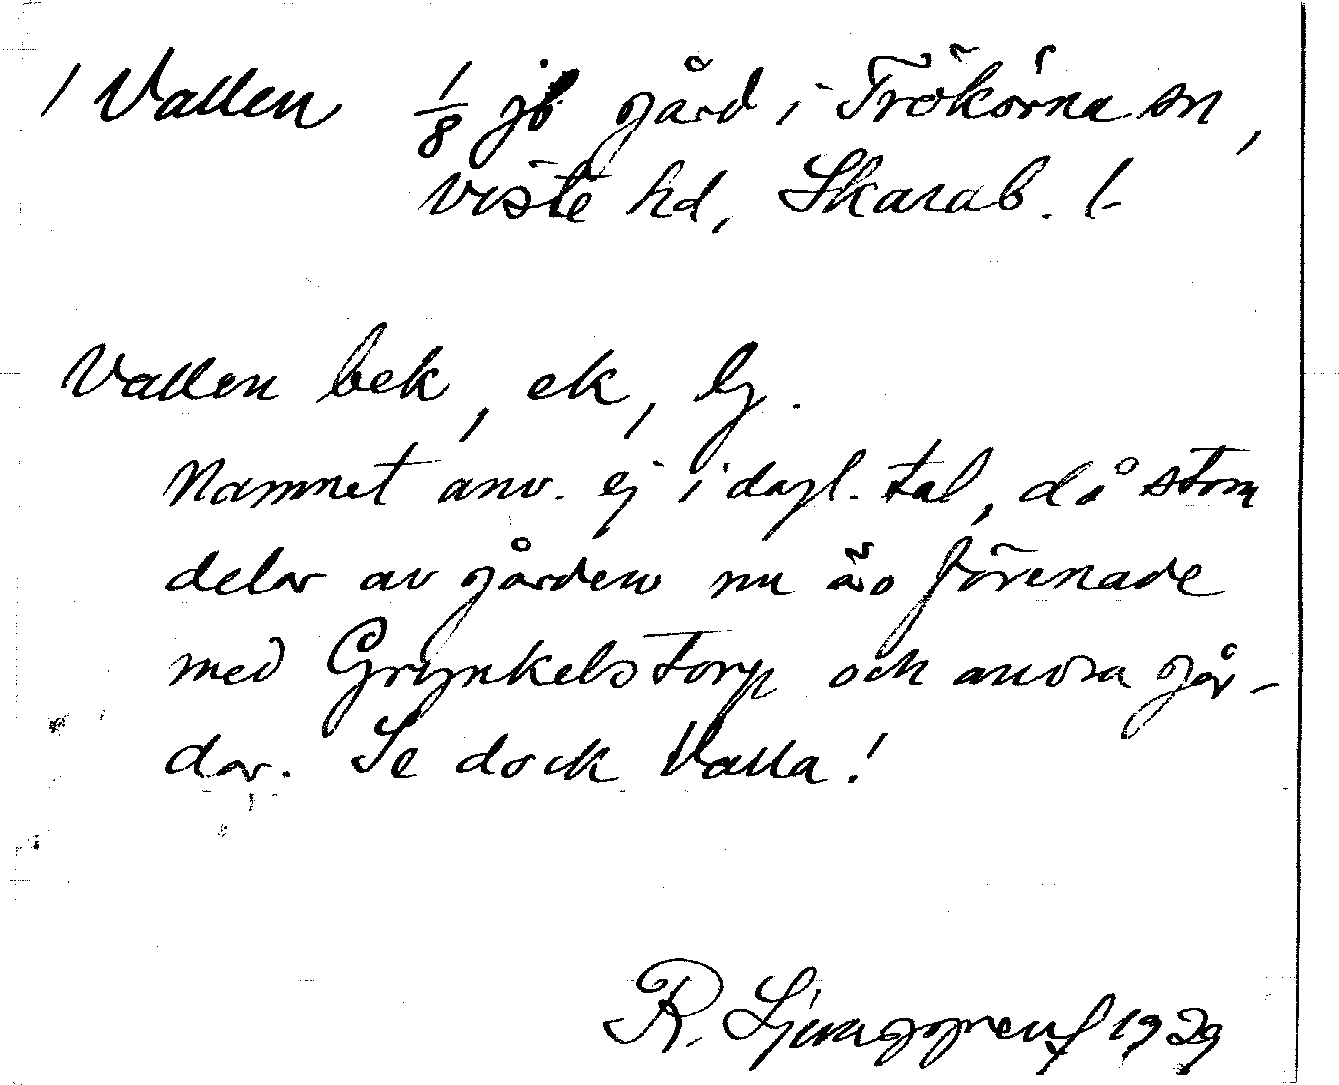 / Vallen 1/8 jb gård i Trökörna sn,
Viste hd, Skarab. l-
Vallen bek, ek, lj.
Namnet anv. ej i dagl. tal, då stom
delar av gården nu äro förenade
med Grynkelstorp och andra går-
dar. Se dock Valla!
R. Ljunggren 1929